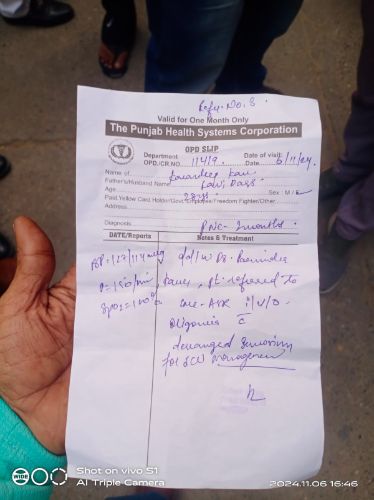 Refer. No. 3.
Valid for One Month Only
The Punjab Health Systems Corporation
OPD SLIP
Department
OPD./CR.NO. 11419.
Date of visit:
Date 6/11/24
Name of Karandeep Kaur
Father's/Husband Name Law Dass
Age 28 yrs Sex : M / F
Paid.Yellow Card Holder/Govt. Employee/Freedom Fighter/Other.
Address
Diagnosis PNC - 2 months
DATE/Reports Notes & Treatment
BP = 127/114 mmHg d/d/w Dr. Parminder
P = 150/min Kaur, Pt. referred to
SpO2 = 100% ASR i/v/o
c̄
deranged
for ICU management
WIDE
Shot on vivo S1
AI Triple Camera
2024.11.06 16:46